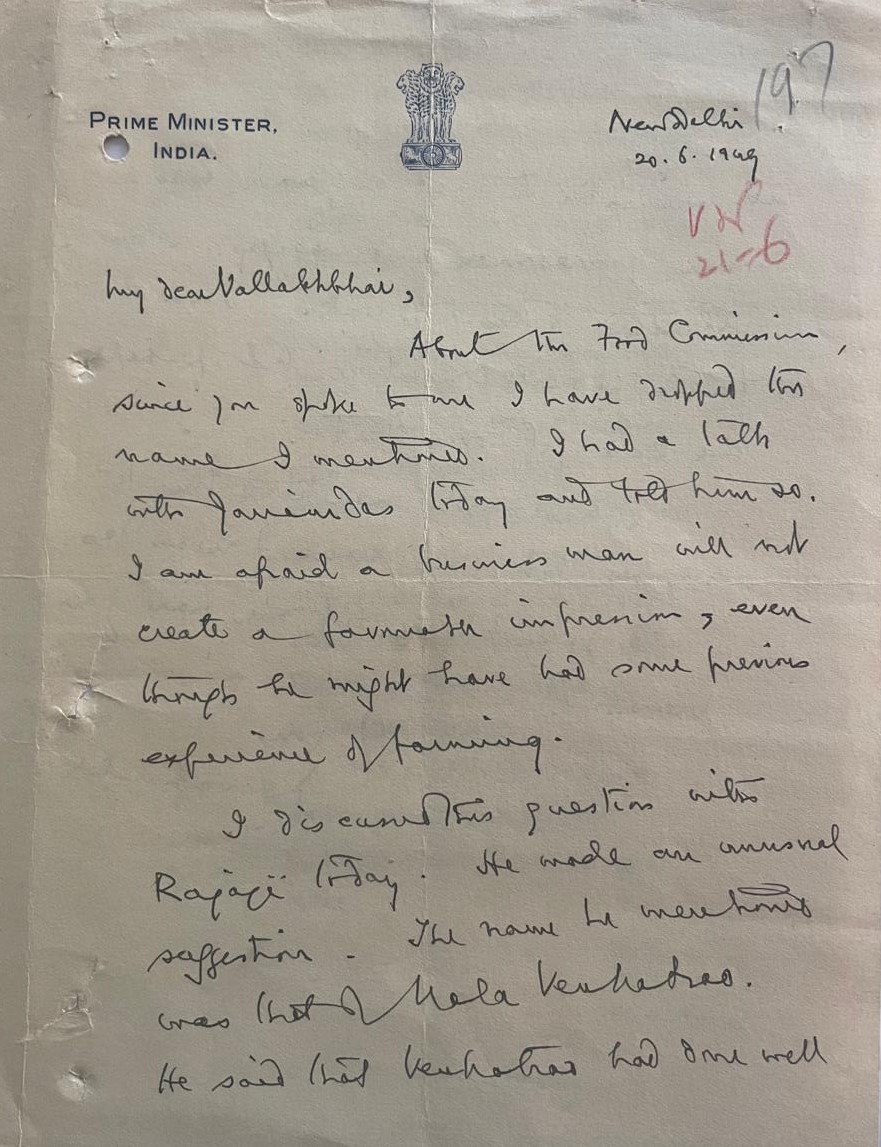 PRIME MINISTER,
INDIA.
197
New Delhi
20.6.1949
21-6
My dear Vallabhbhai,
About the Food Commission,
since you spoke to me I have dropped the
name I mentioned. I had a talk
with Jairamdas today and told him so.
I am afraid a business man will not
create a favourable impression, even
though he might have had some previous
experience of farming.
I discussed this question with
Rajaji today. He made an unusual
suggestion. The name he mentioned
was that of Kala Venkatrao.
He said that Venkatrao had done well